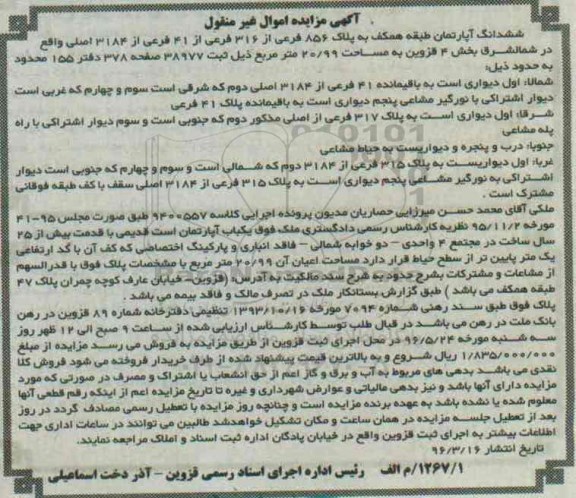 آگهی مزایده اموال غیر منقول
ششدانگ آپارتمان طبقه همکف به پلاک ۸۵۶ فرعی از ۳۱۶ فرعی از ۴۱ فرعی از ۳۱۸۴ اصلی واقع
در شمالشرق بخش ۴ قزوین به مساحت ۲۰/۹۹ متر مربع ذیل ثبت ۳۸۹۷۷ صفحه ۳۷۸ دفتر ۱۵۵ محدود
به حدود ذیل:
شمالا: اول دیواری است به باقیمانده ۴۱ فرعی از ۳۱۸۴ اصلی دوم که شرقی است سوم و چهارم که غربی است
دیوار اشتراکی با نورگیر مشاعی پنجم دیواری است به باقیمانده پلاک ۴۱ فرعی
شرقا: اول دیواری است به پلاک ۳۱۷ فرعی از اصلی مذکور دوم که جنوبی است و سوم دیوار اشتراکی با راه
پله مشاعی
جنوبا: درب و پنجره و دیواریست به حیاط مشاعی
غربا: اول دیواریست به پلاک ۳۱۵ فرعی از ۳۱۸۴ دوم که شمالی است و سوم و چهارم که جنوبی است دیوار
اشتراکی به نورگیر مشاعی پنجم دیواری است به پلاک ۳۱۵ فرعی از ۳۱۸۴ اصلی سقف با کف طبقه فوقانی
مشترک است .
ملکی آقای محمد حسن میرزایی حصاریان مدیون پرونده اجرایی کلاسه ۹۴۰۰۵۵۷ طبق صورت مجلس ۴۱-۹۵
مورخه ۹۵/۱۱/۲ نظریه کارشناس رسمی دادگستری ملک فوق یکباب آپارتمان است قدیمی با قدمت بیش از ۲۵
سال ساخت در مجتمع ۴ واحدی – دو خوابه شمالی – فاقد انباری و پارکینگ اختصاصی که کف آن با گد ارتفاعی
یک متر پایین تر از سطح حیاط قرار دارد مساحت اعیان آن ۲۰/۹۹ متر مربع با مشخصات پلاک فوق با قدرالسهم
از مشاعات و مشترکات بشرح حدود به شرح سند مالکیت به آدرس: (قزوین– خیابان عارف کوچه چمران پلاک ۴۷
طبقه همکف می باشد ) طبق گزارش بستانکار ملک در تصرف مالک و فاقد بیمه می باشد .
پلاک فوق طبق سند رهنی شماره ۷۰۹۴ مورخه ۱۳۹۳/۱۰/۱۶ تنظیمی دفترخانه شماره ۸۹ قزوین در رهن
بانک ملت در رهن می باشد در قبال طلب توسط کارشناس ارزیابی شده از ساعت ۹ صبح الی ۱۲ ظهر روز
سه شنبه مورخه ۹۶/۵/۲۴ در محل اجرای ثبت قزوین از طریق مزایده به فروش می رسد مزایده از مبلغ
۱/۸۳۵/۰۰۰/۰۰۰ ریال شروع و به بالاترین قیمت پیشنهاد شده از طرف خریدار فروخته می شود فروش کلا
نقدی می باشد بدهی های مربوط به آب و برق و گاز اعم از حق انشعاب یا اشتراک و مصرف در صورتی که مورد
مزایده دارای آنها باشد و نیز بدهی مالیاتی و عوارض شهرداری و غیره تا تاریخ مزایده اعم از اینکه رقم قطعی آنها
معلوم شده یا نشده باشد به عهده برنده مزایده است و چنانچه روز مزایده با تعطیل رسمی مصادف گردد در روز
بعد از تعطیل جلسه مزایده در همان ساعت و مکان تشکیل خواهدشد طالبین می توانند در ساعات اداری جهت
اطلاعات بیشتر به اجرای ثبت قزوین واقع در خیابان پادگان اداره ثبت اسناد و املاک مراجعه نمایند.
تاریخ انتشار ۹۶/۳/۱۶
۱۲۶۷/۱/م الف رئیس اداره اجرای اسناد رسمی قزوین – آذر دخت اسماعیلی